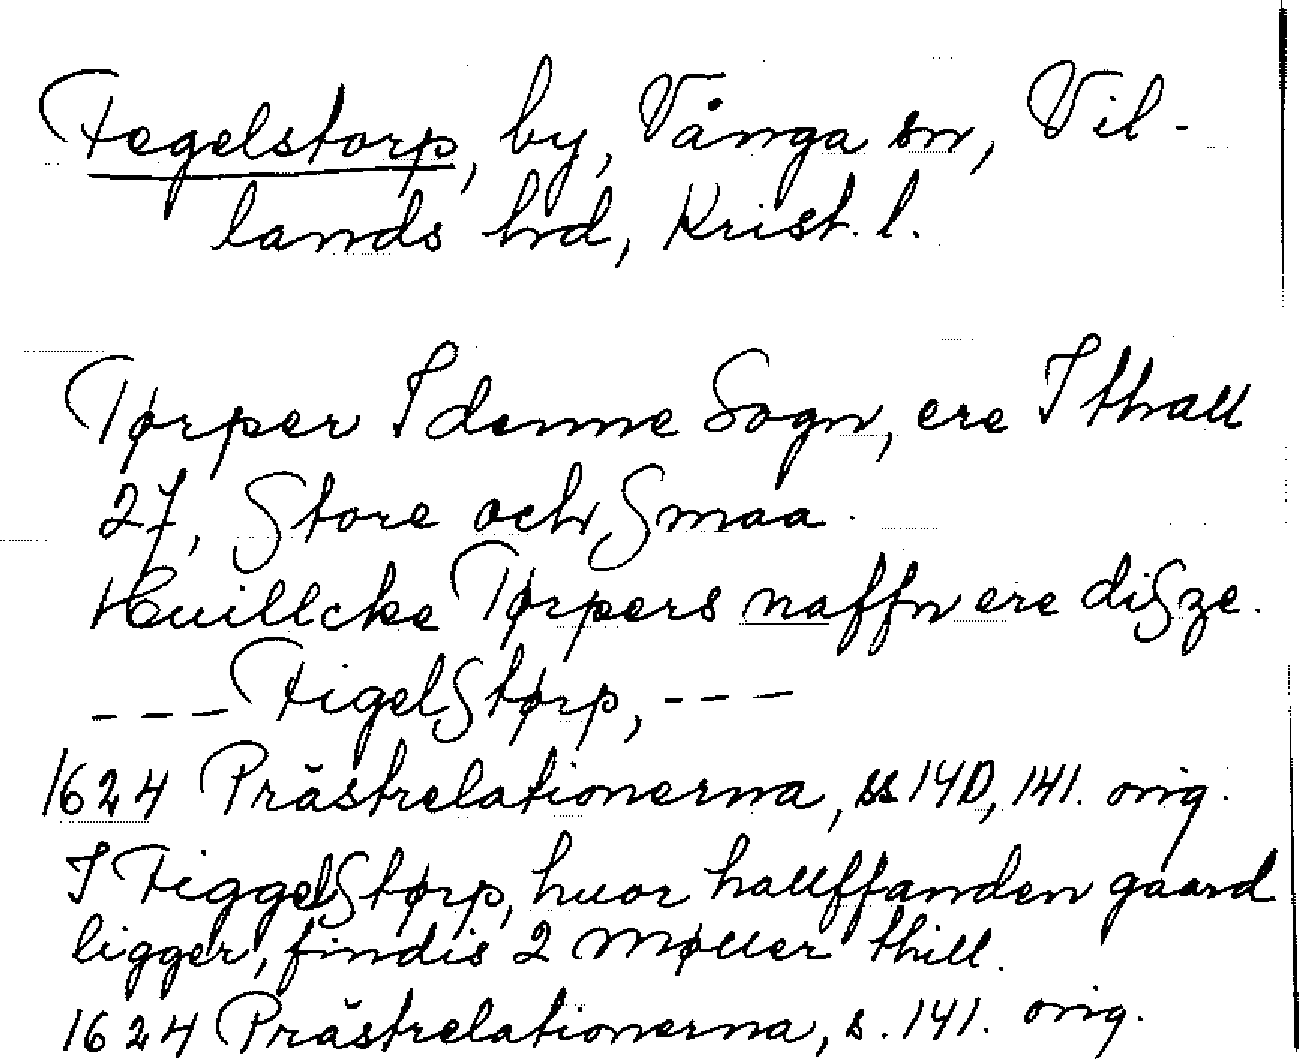 Fegelstorp, by, Vånga sn, Vil-
lands hd, Krist. l.
Tørper I denne Sogn, ere I thall
27, Store och Smaa.
Huillcke Tørpers naffn ere diSze.
--- FigelStørp, ---
1624 Prästrelationerna, ss 140, 141. orig.
I FiggelStørp, huor hallffanden gaard
ligger, findis 2 Møller thill.
1624 Prästrelationerna, s. 141. orig.